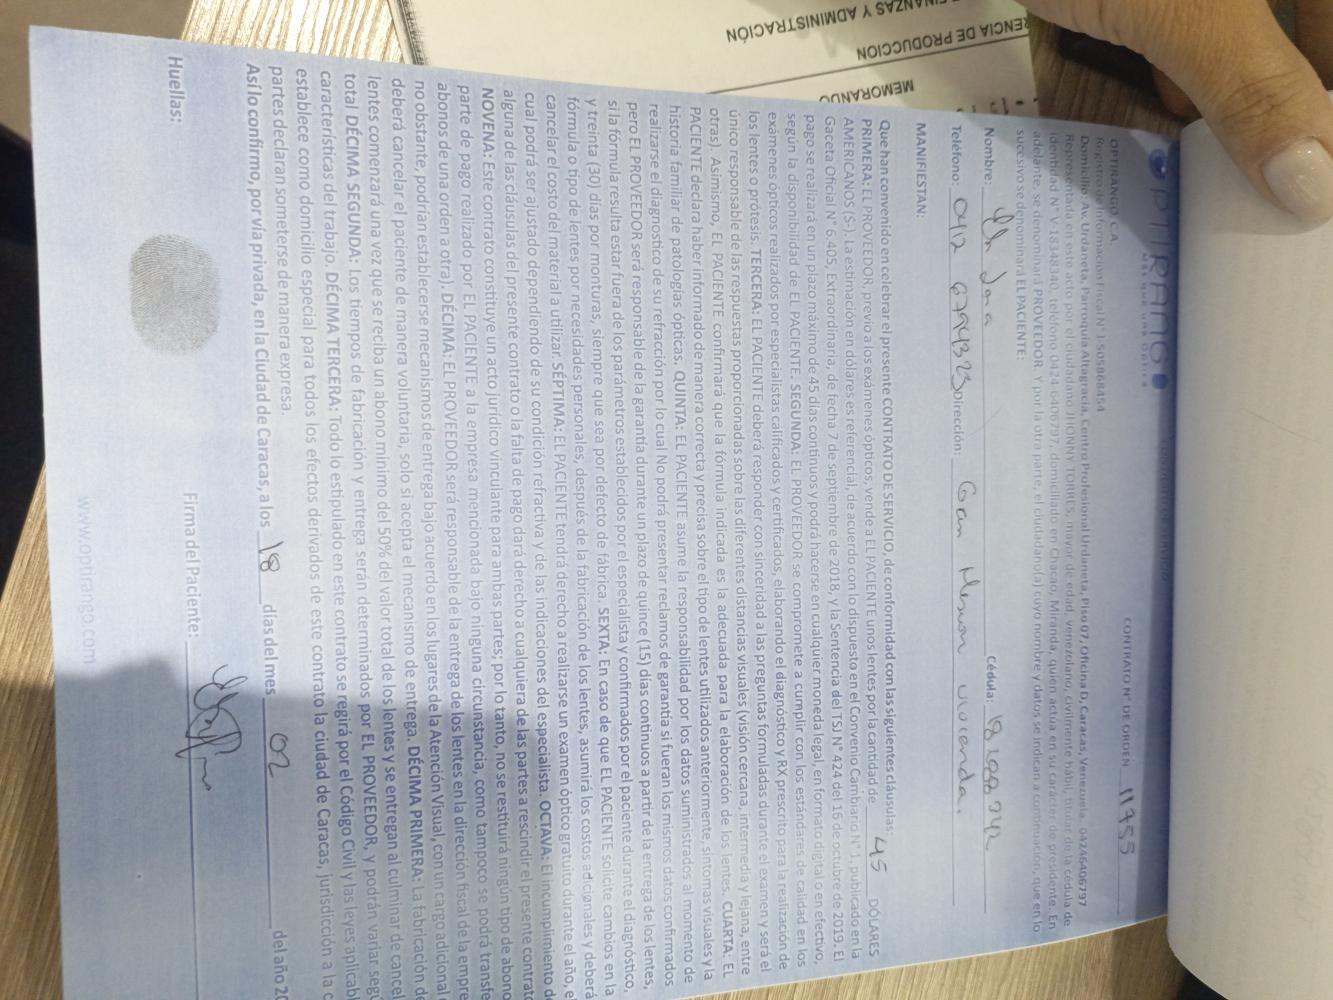 OPTIRANGO
MÁS QUE UNA ÓPTICA
CONTRATO N° DE ORDEN 11955
OPTIRANGO C.A.
Registro de Información Fiscal N° J-505868454
Domicilio: Av. Urdaneta, Parroquia Altagracia, Centro Profesional Urdaneta, Piso 07, Oficina D, Caracas, Venezuela. 04246406797
Representada en este acto por el ciudadano JHONNY TORRES, mayor de edad, venezolano, civilmente hábil, titular de la cédula de
identidad N° V-18348340, teléfono 0424-6406797, domiciliado en Chacao, Miranda, quien actúa en su carácter de presidente. En
adelante, se denominará PROVEEDOR. Y por la otra parte, el ciudadano(a) cuyo nombre y datos se indican a continuación, que en lo
sucesivo se denominará EL PACIENTE:
Nombre: Cédula:
Teléfono: 0412 Dirección: Gran Misión vivienda.
MANIFIESTAN:
Que han convenido en celebrar el presente CONTRATO DE SERVICIO, de conformidad con las siguientes cláusulas:
PRIMERA: EL PROVEEDOR, previo a los exámenes ópticos, vende a EL PACIENTE unos lentes por la cantidad de 45 DÓLARES
AMERICANOS ($-). La estimación en dólares es referencial, de acuerdo con lo dispuesto en el Convenio Cambiario N° 1, publicado en la
Gaceta Oficial N° 6.405, Extraordinaria, de fecha 7 de septiembre de 2018, y la Sentencia del TSJ N° 424 del 16 de octubre de 2019. El
pago se realizará en un plazo máximo de 45 días continuos y podrá hacerse en cualquier moneda legal, en formato digital o en efectivo,
según la disponibilidad de EL PACIENTE. SEGUNDA: EL PROVEEDOR se compromete a cumplir con los estándares de calidad en los
exámenes ópticos realizados por especialistas calificados y certificados, elaborando el diagnóstico y RX prescrito para la realización de
los lentes o prótesis. TERCERA: EL PACIENTE deberá responder con sinceridad a las preguntas formuladas durante el examen y será el
único responsable de las respuestas proporcionadas sobre las diferentes distancias visuales (visión cercana, intermedia y lejana, entre
otras). Asimismo, EL PACIENTE confirmará que la fórmula indicada es la adecuada para la elaboración de los lentes. CUARTA: EL
PACIENTE declara haber informado de manera correcta y precisa sobre el tipo de lentes utilizados anteriormente, síntomas visuales y la
historia familiar de patologías ópticas. QUINTA: EL PACIENTE asume la responsabilidad por los datos suministrados al momento de
realizarse el diagnostico de su refracción por lo cual No podrá presentar reclamos de garantía si fueran los mismos datos confirmados
pero EL PROVEEDOR será responsable de la garantía durante un plazo de quince (15) días continuos a partir de la entrega de los lentes,
y treinta (30) días por monturas, siempre que sea por defecto de fábrica. SEXTA: En caso de que EL PACIENTE solicite cambios en la
si la fórmula resulta estar fuera de los parámetros establecidos por el especialista y confirmados por el paciente durante el diagnóstico,
fórmula o tipo de lentes por necesidades personales, después de la fabricación de los lentes, asumirá los costos adicionales y deberá
cancelar el costo del material a utilizar. SÉPTIMA: EL PACIENTE tendrá derecho a realizarse un examen óptico gratuito durante el año, el
cual podrá ser ajustado dependiendo de su condición refractiva y de las indicaciones del especialista. OCTAVA: El incumplimiento de
alguna de las cláusulas del presente contrato o la falta de pago dará derecho a cualquiera de las partes a rescindir el presente contrato
NOVENA: Este contrato constituye un acto jurídico vinculante para ambas partes; por lo tanto, no se restituirá ningún tipo de abono
parte de pago realizado por EL PACIENTE a la empresa mencionada bajo ninguna circunstancia, como tampoco se podrá transfe
abonos de una orden a otra). DÉCIMA: EL PROVEEDOR será responsable de la entrega de los lentes en la dirección fiscal de la empre
no obstante, podrían establecerse mecanismos de entrega bajo acuerdo en los lugares de la Atención Visual, con un cargo adicional
deberá cancelar el paciente de manera voluntaria, solo si acepta el mecanismo de entrega. DÉCIMA PRIMERA: La fabricación de
lentes comenzará una vez que se reciba un abono mínimo del 50% del valor total de los lentes y se entregan al culminar de cancel
total DÉCIMA SEGUNDA: Los tiempos de fabricación y entrega serán determinados por EL PROVEEDOR, y podrán variar segú
características del trabajo. DÉCIMA TERCERA: Todo lo estipulado en este contrato se regirá por el Código Civil y las leyes aplicabl
establece como domicilio especial para todos los efectos derivados de este contrato la ciudad de Caracas, jurisdicción a la c
partes declaran someterse de manera expresa.
Así lo confirmo, por vía privada, en la Ciudad de Caracas, a los 18 días del mes 02 del año 20
Huellas: Firma del Paciente:
www.optirango.com
MEMORANDO
RENCIA DE PRODUCCION
FINANZAS Y ADMINISTRACIÓN